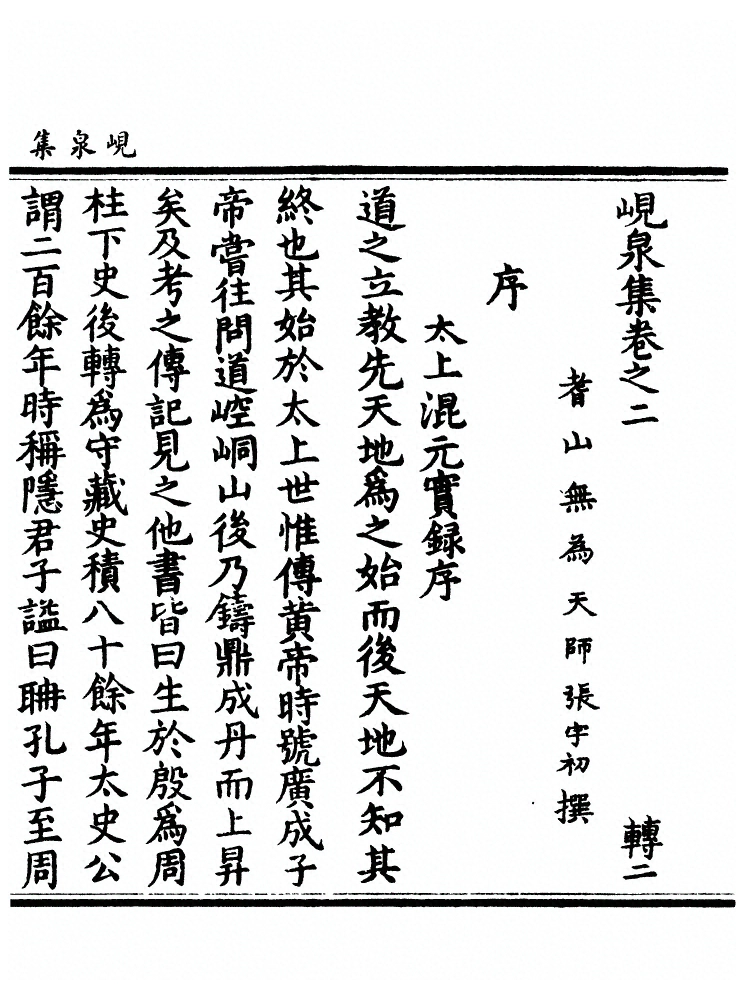 峴泉集
峴泉集卷之二
轉二
耆山無為天師張宇初撰
序
太上混元實録序
道之立教先天地爲之始而後天地不知其
終也其始於太上世惟傳黄帝時號廣成子
帝嘗往問道崆峒山後乃鑄鼎成丹而上昇
矣及考之傳記見之他書皆曰生於殷爲周
柱下史後轉爲守藏史積八十餘年太史公
謂二百餘年時稱隱君子謚曰聃孔子至周